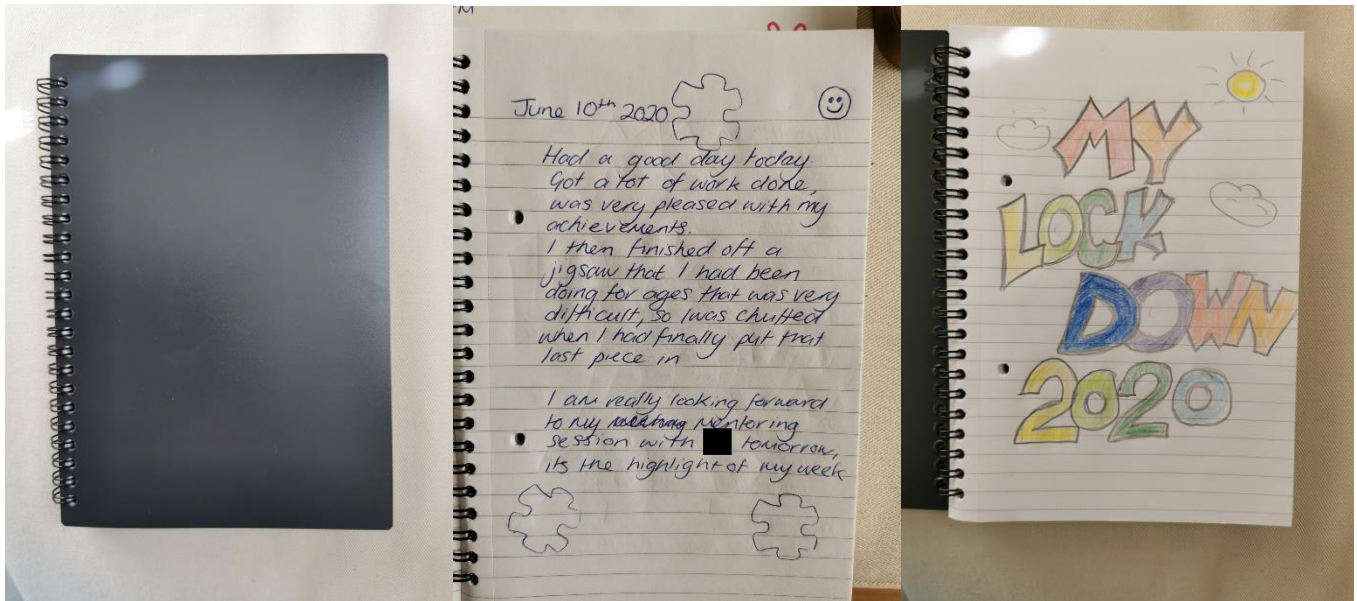 June 10th 2020
Had a good day today
Got a lot of work done,
was very pleased with my
achievements.
I then finished off a
jigsaw that I had been
doing for ages that was very
difficult, so I was chuffed
when I had finally put that
last piece in
I am really looking forward
to my Mentoring
session with tomorrow,
its the highlight of my week
MY
LOCK
DOWN
2020